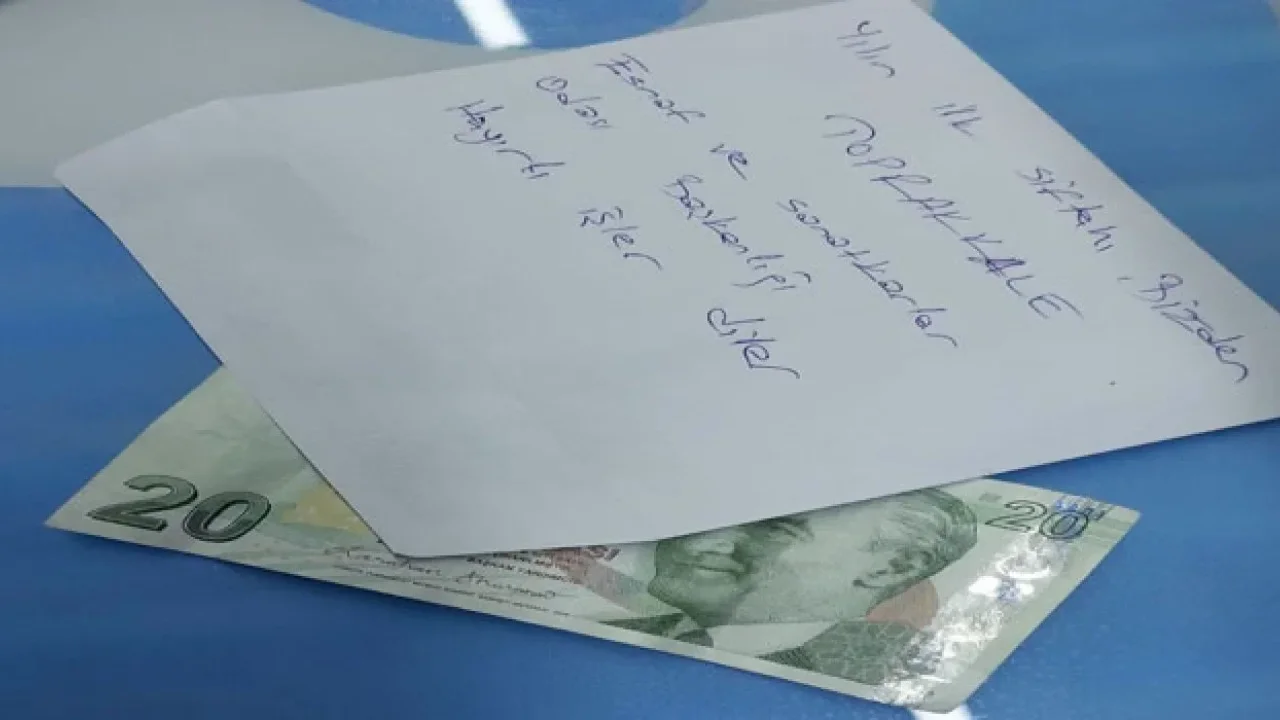 Yılın ilk siftahı, Bizden
TOPRAKKALE
Esnaf ve sanatkarlar
Odası Başkanlığı diler
Hayırlı işler
20
20